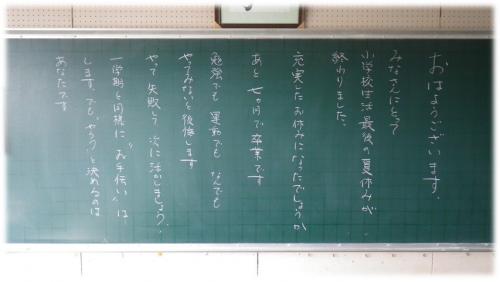 おはようございます。
みなさんにとって
小学校生活最後の夏休みが
終わりました。
充実したお休みになったでしょうか
あと七ヵ月で卒業です
勉強でも運動でもなんでも
やってみないと後悔します
やって失敗して次に活かしましょう。
一学期と同様に“お手伝い”は
します。でも、“やろう”と決めるのは
あなたです